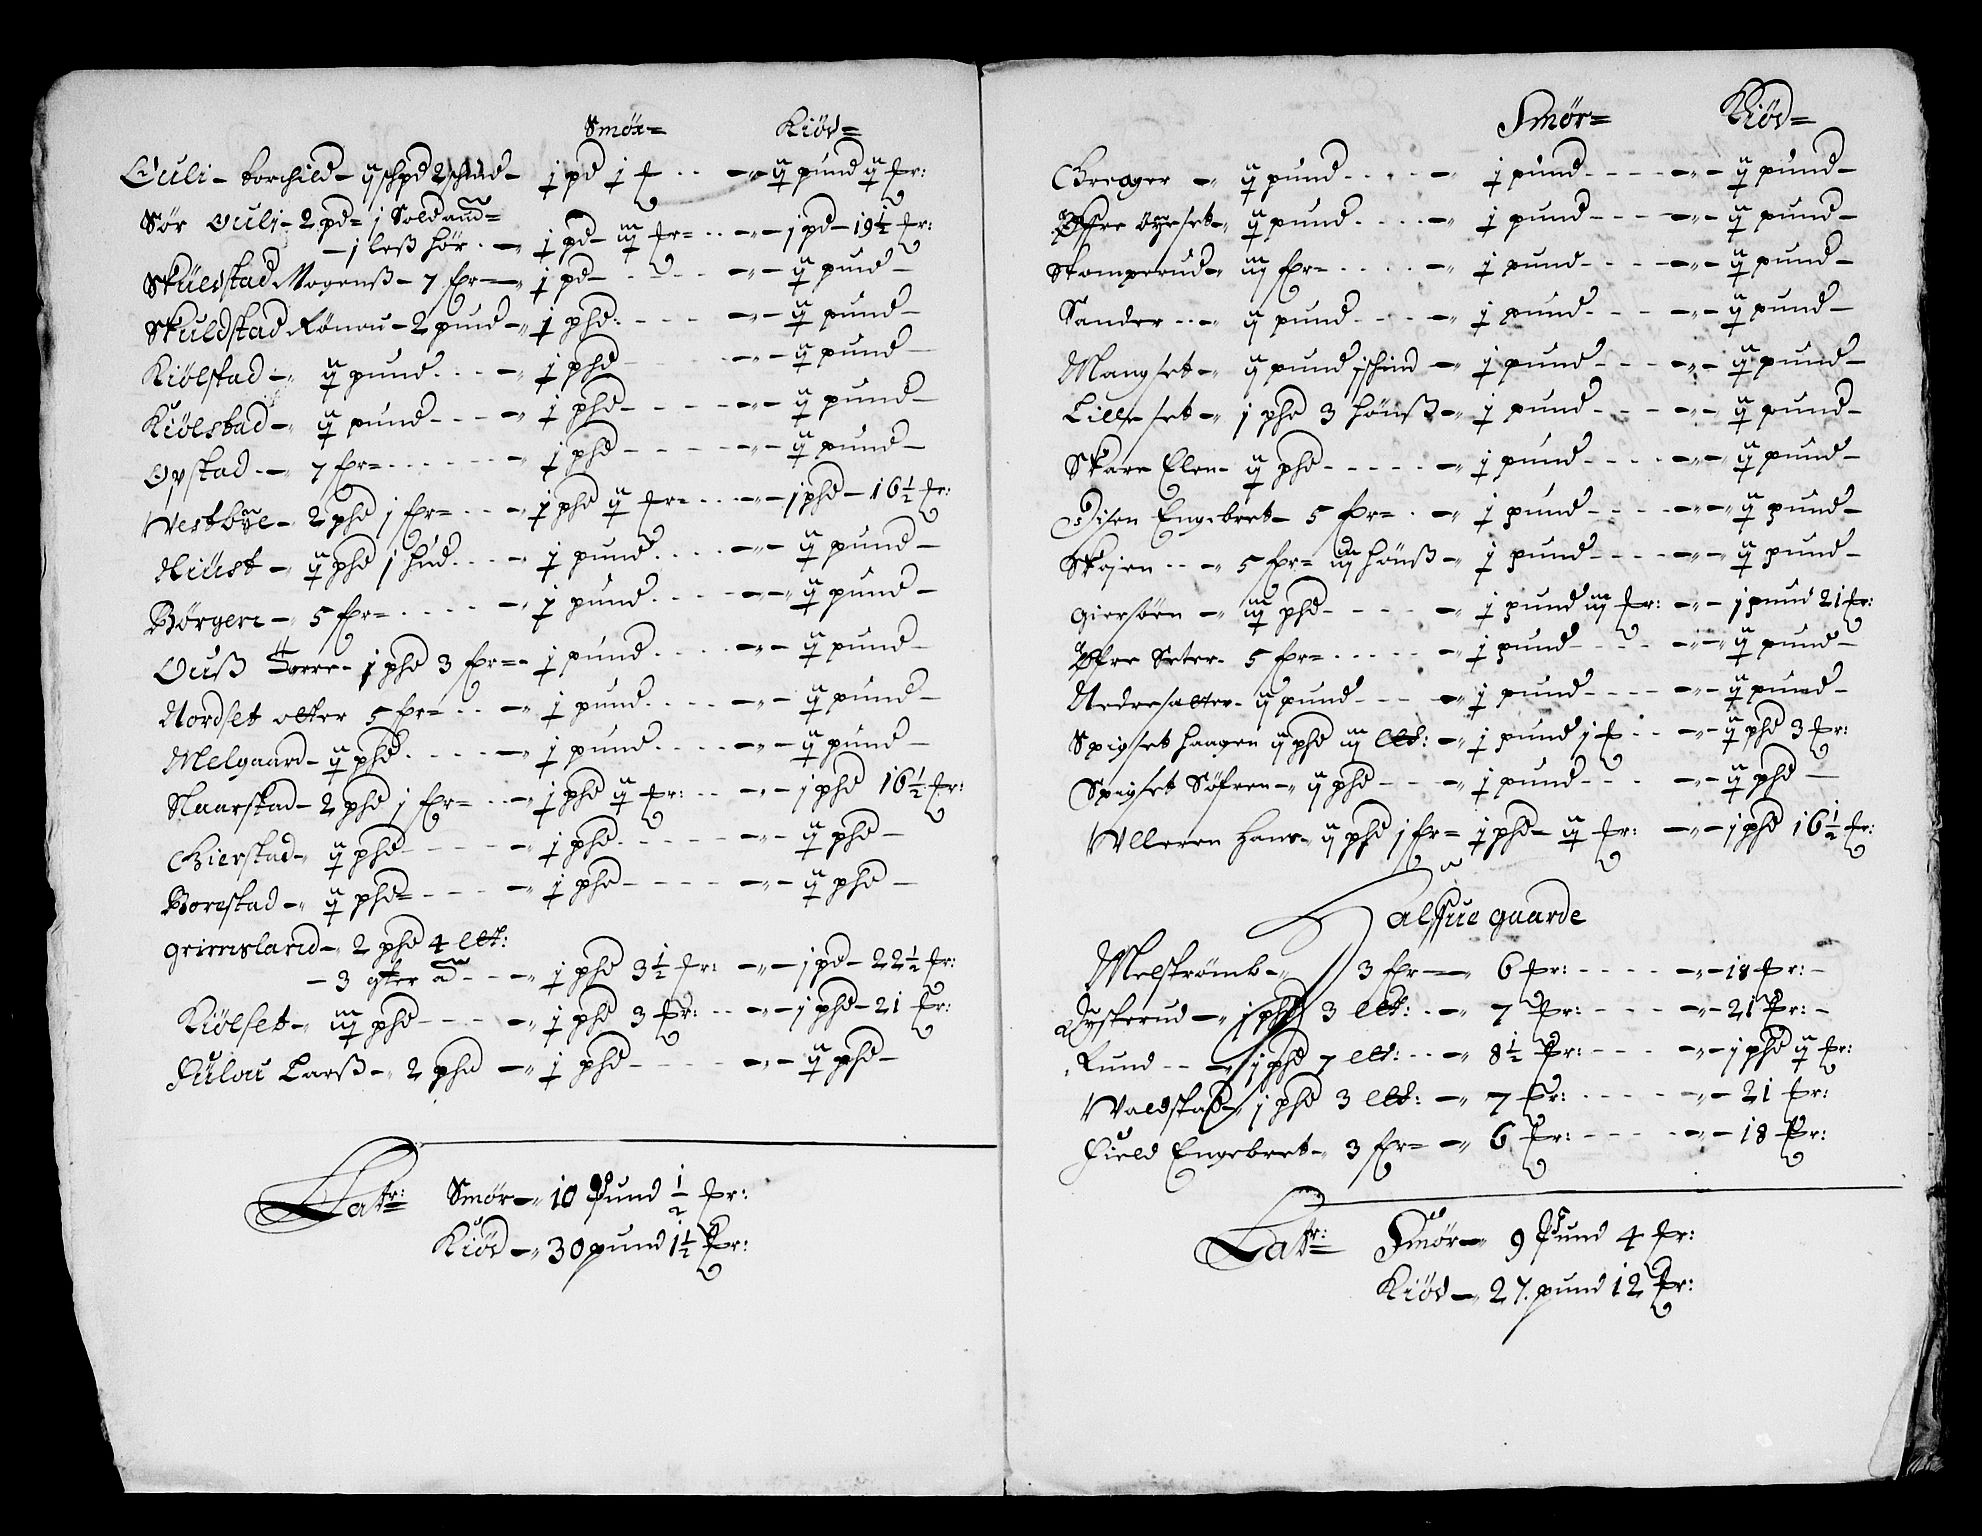 Smör= Kiöd=
Ouli - torchild - ij schpd 2 schind - j pd j f - ij pund ij fr:
Sör Ouli - 2 pd= j
- 1 leß hör - j pd - iij fr= - j pd - 19½ fr:
Skuldstad Mogenß - 7 fr= - j pd - ij pund -
Skuldstad Rönou - 2 pund - j phd: - ij pund -
Kiölstad - ij pund - j phd - ij pund -
Kiölstad - ij pund - j phd - ij pund -
Opstad - 7 fr= - j phd - ij pund -
Westbÿe - 2 phd j fr= - j phd ij fr= - j phd - 16½ fr:
Hiüst - ij phd j hud - j pund - ij pund -
Börgen - 5 fr= - j pund - ij pund -
Ouß torre - j phd 3 fr= - j pund - ij pund -
Nordset otter 5 fr= - j pund - ij pund -
Melgaard - ij phd - j pund - ij pund -
Naarstad - 2 phd j fr= - j phd ij fr: - j phd 16½ fr:
Gierstad - ij phd - j phd - ij phd -
Borestad - ij phd= - j phd - ij phd -
grimsland - 2 phd 4 lltt:
- 3 - j phd 3½ fr: - j pd - 22½ fr:
Kiölset - iij phd - j phd 3 fr: - j phd - 21 fr:
Fulou Larß - 2 phd - j phd - ij phd -
Latr: Smör - 10 Pund ½ fr:
Kiöd - 30 pund 1½ fr:
Smör= Kiöd=
Gregger - ij pund - j pund - ij pund -
Öffre öÿeset - ij pund - j pund - ij pund -
Skomperud - iij fr= - j pund - ij pund -
Sander - ij pund - j pund - ij pund -
Mangset - ij pund j schind - j pund - ij pund -
Lille set - j phd 3 hönß - j pund - ij pund -
Skare Elen - ij phd - j pund - ij pund -
Disen Engebret - 5 fr= - j pund - ij pund -
Skojen - 5 fr= iij hönß - j pund - ij pund -
giersöen - iij phd - j pund iij fr: - j pund 21 fr:
Öfre Seter - 5 fr= - j pund - ij pund -
Nedresatter - ij pund - j pund - ij pund -
Spigset haagen ij phd iij lltt: - j pund j f - ij phd 3 fr:
Spigset Söfren - ij phd - j pund - ij phd -
Ulleren Hans - ij phd j fr= j phd - ij fr: - j phd 16½ fr:
Halffue gaarde
Melströmb - 3 fr - 6 fr: - 18 fr: -
Dysterud - j phd 3 lltt: - 7 fr: - 21 fr: -
Lund - j phd 7 lltt: - 8½ fr: - j phd ij fr:
Waldstad - j phd 3 lltt: - 7 fr: - 21 fr:
Field Engebret - 3 fr= - 6 fr: - 18 fr:
Latr: Smör - 9 Pund 4 fr:
Kiöd - 27. pund 12 fr: